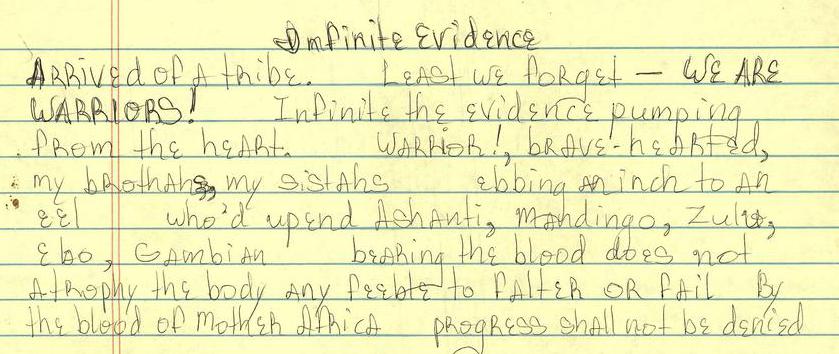 Infinite Evidence
ARRivEd of A tribe. LEAST WE forget — WE ARE
WARRIORS! Infinite the evidence pumping
from the heart. WARRior!, bRAVE-heARted,
my brothahs, my sistahs ebbing an inch to an
eel who'd upend Ashanti, Mandingo, Zulu,
Ebo, Gambian bearing the blood does not
Atrophy the body any feeble to fALTER OR fAil By
the blood of Mother Africa progress shall not be denied